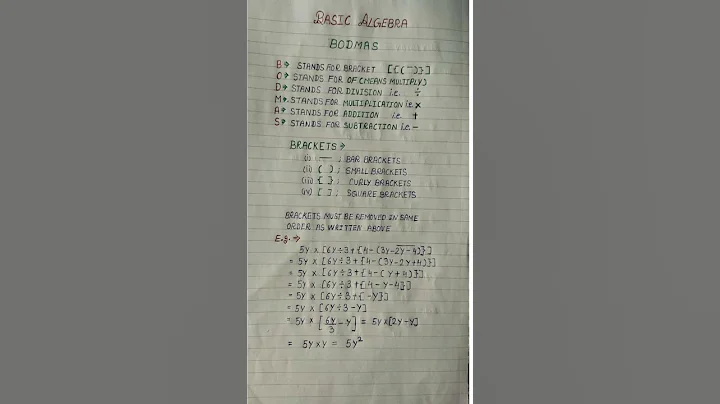 BASIC ALGEBRA
BODMAS
B→ STANDS FOR BRACKET [{(‾)}]
O→ STANDS FOR OF (MEANS MULTIPLY)
D→ STANDS FOR DIVISION i.e. ÷
M→ STANDS FOR MULTIPLICATION i.e. ×
A→ STANDS FOR ADDITION i.e. +
S→ STANDS FOR SUBTRACTION i.e. −
BRACKETS →
(i) — ; BAR BRACKETS
(ii) ( ) ; SMALL BRACKETS
(iii) { } ; CURLY BRACKETS
(iv) [ ] ; SQUARE BRACKETS
BRACKETS MUST BE REMOVED IN SAME
ORDER AS WRITTEN ABOVE
E.g. →
5y × [6y÷3+{4−(3y−2y−4)}]
= 5y × [6y÷3+{4−(3y−2y+4)}]
= 5y × [6y÷3+{4−(y+4)}]
= 5y × [6y÷3+{4−y−4}]
= 5y × [6y÷3+{−y}]
= 5y × [6y÷3−y]
= 5y × [6y/3 −y] = 5y×[2y−y]
= 5y×y = 5y²